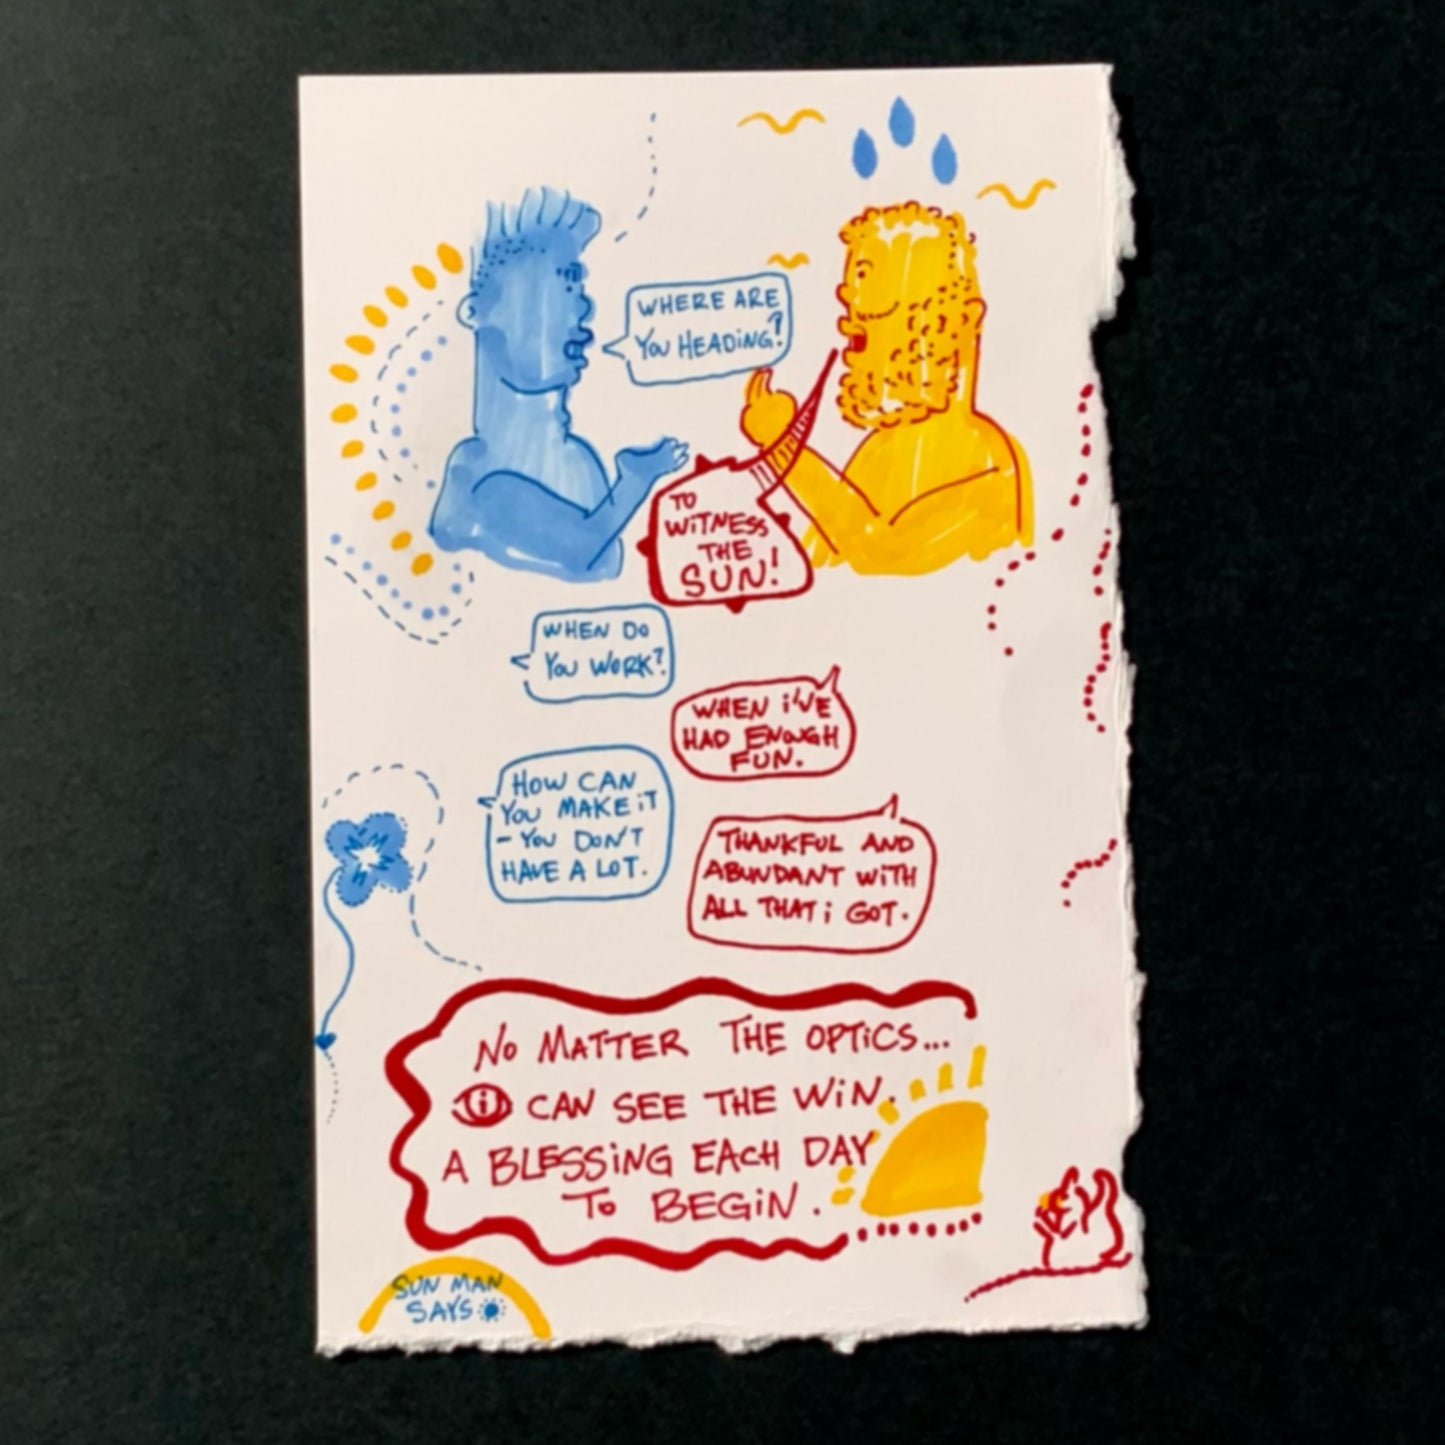 WHERE ARE
YOU HEADING?
TO
WITNESS
THE
SUN!
WHEN DO
YOU WORK?
WHEN i'VE
HAD ENOUGH
FUN.
HOW CAN
YOU MAKE iT
- YOU DON'T
HAVE A LOT.
THANKFUL AND
ABUNDANT WiTH
ALL THAT i GOT.
NO MATTER THE OPTiCS...
i CAN SEE THE WiN.
A BLESSiNG EACH DAY
To BEGiN.
SUN MAN
SAYS